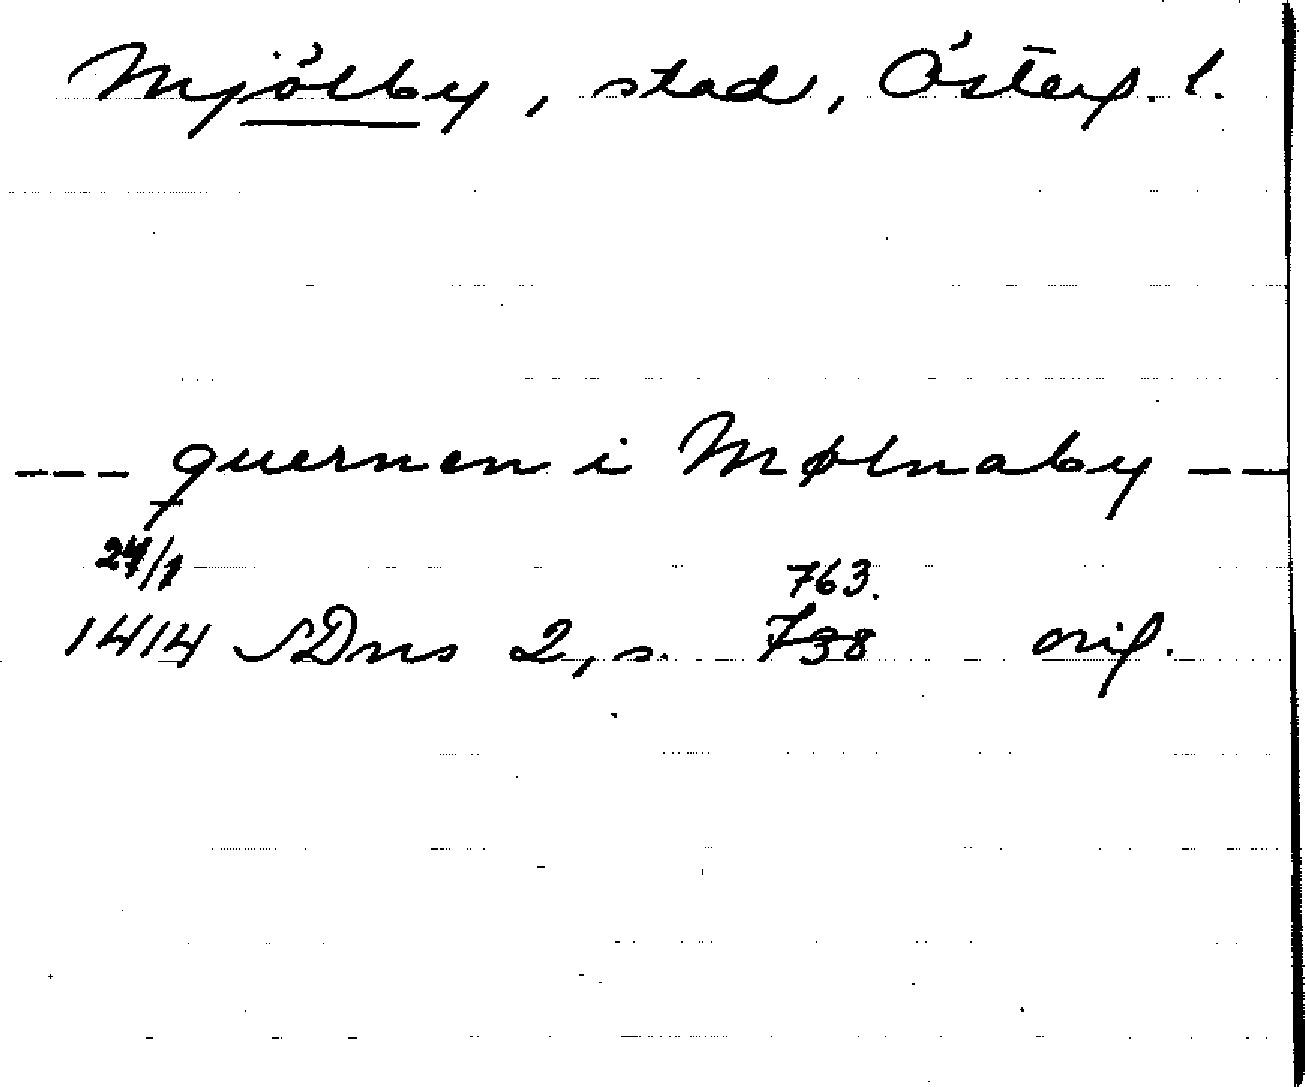 Mjölby, stad, Österg. l.
--- quernen i Mølnaby --
24/1 763.
1414 SDns 2, s. 738 orig.